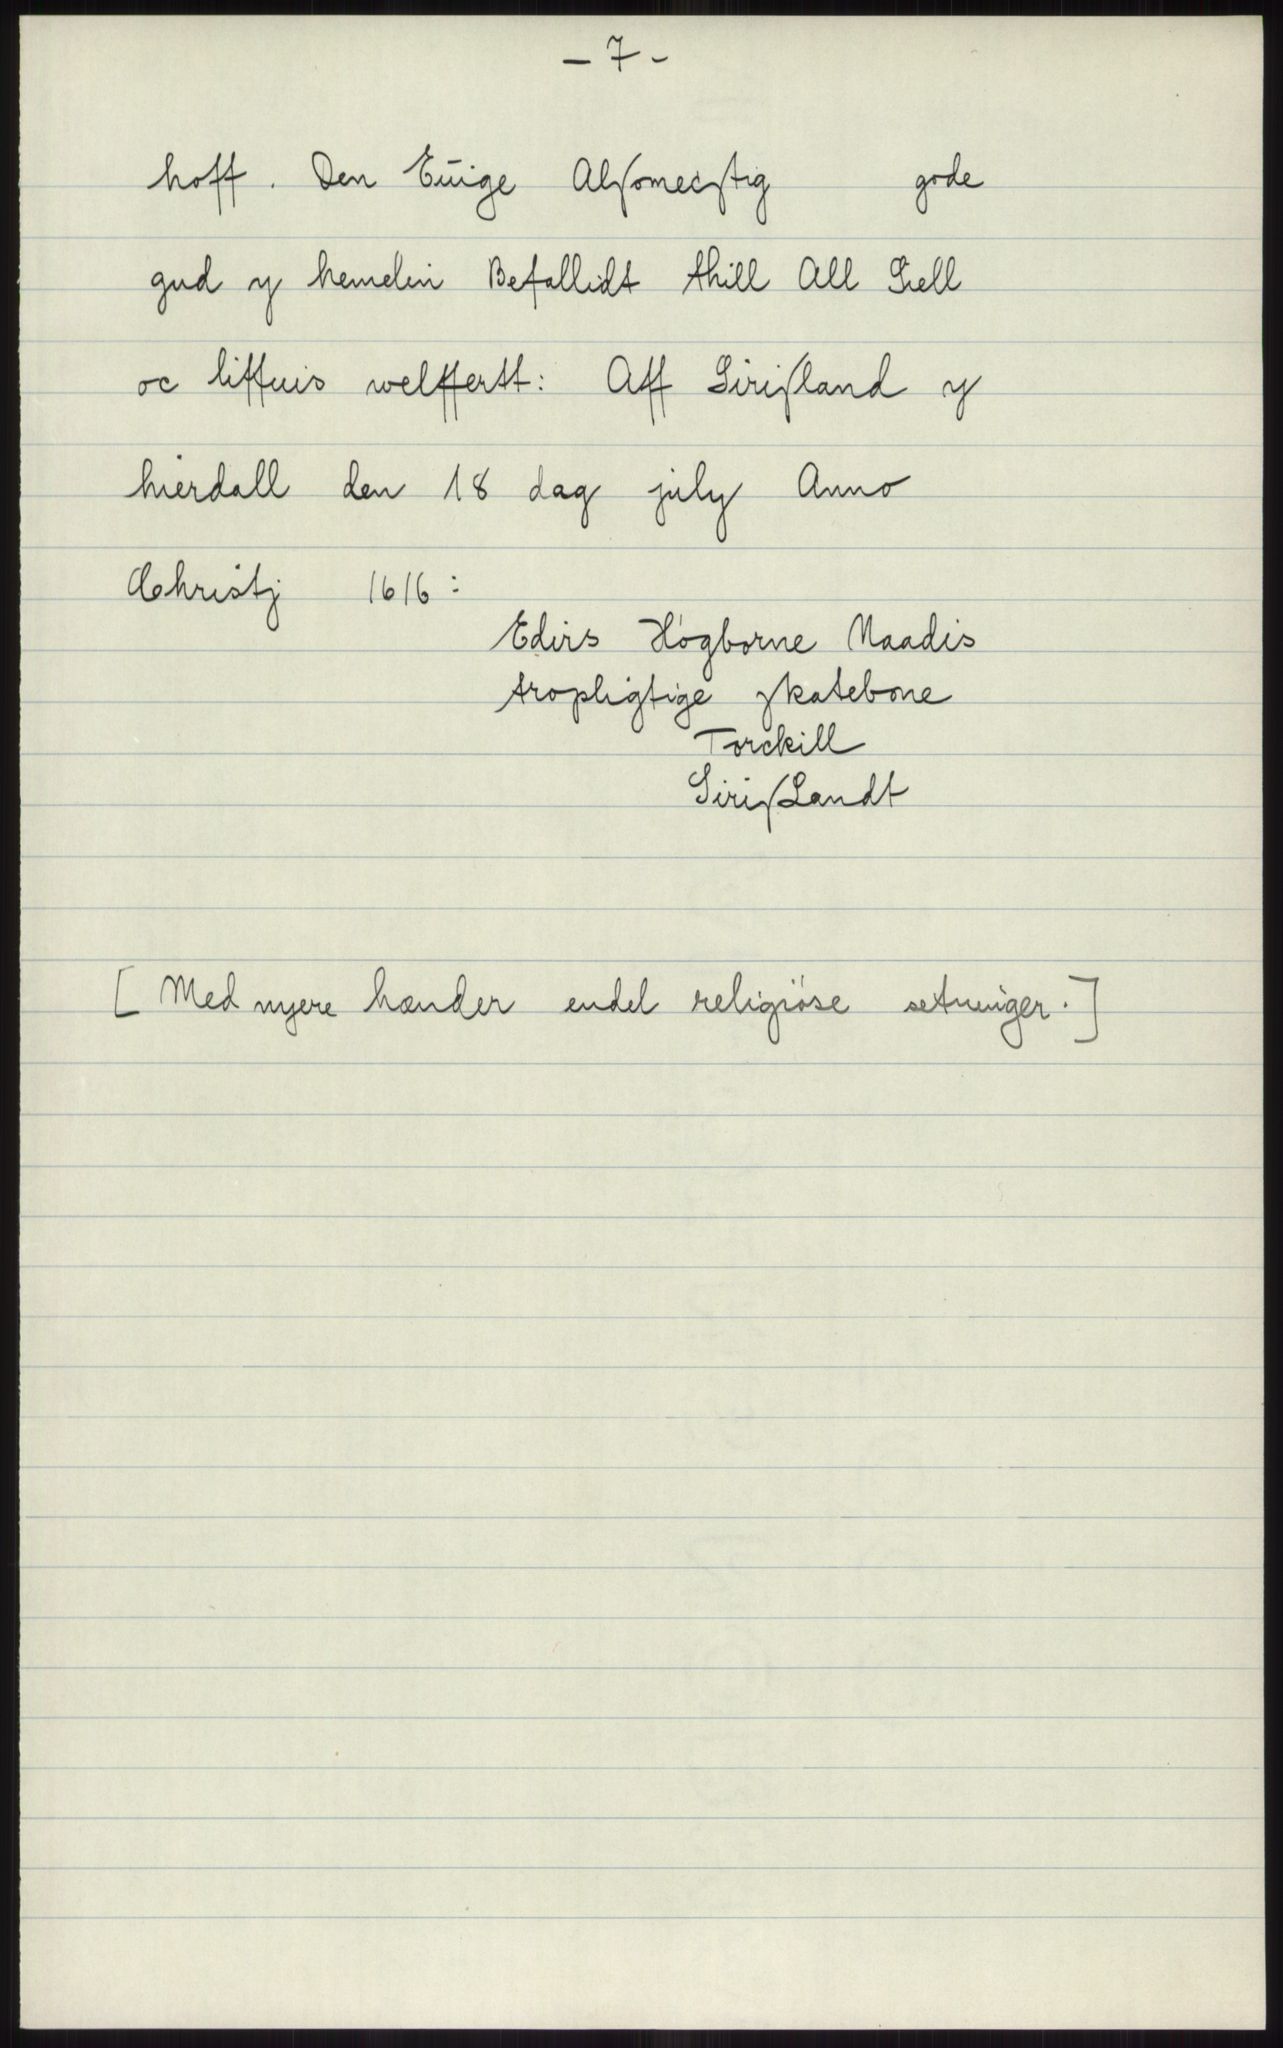 - 7 -
hoff. Den Euige Alſomeiſtig gode
gud y hemelin Befallidt thill All Siell
oc liffuis welffertt: Aff Siriſland y
hierdall den 18 dag july Anno
Christj 1616:
Edirs Høgborne Naadis
tropligtige ſkatebone
Torckill
SiriſLandt
[Med nyere hænder endel religiöse setninger.]